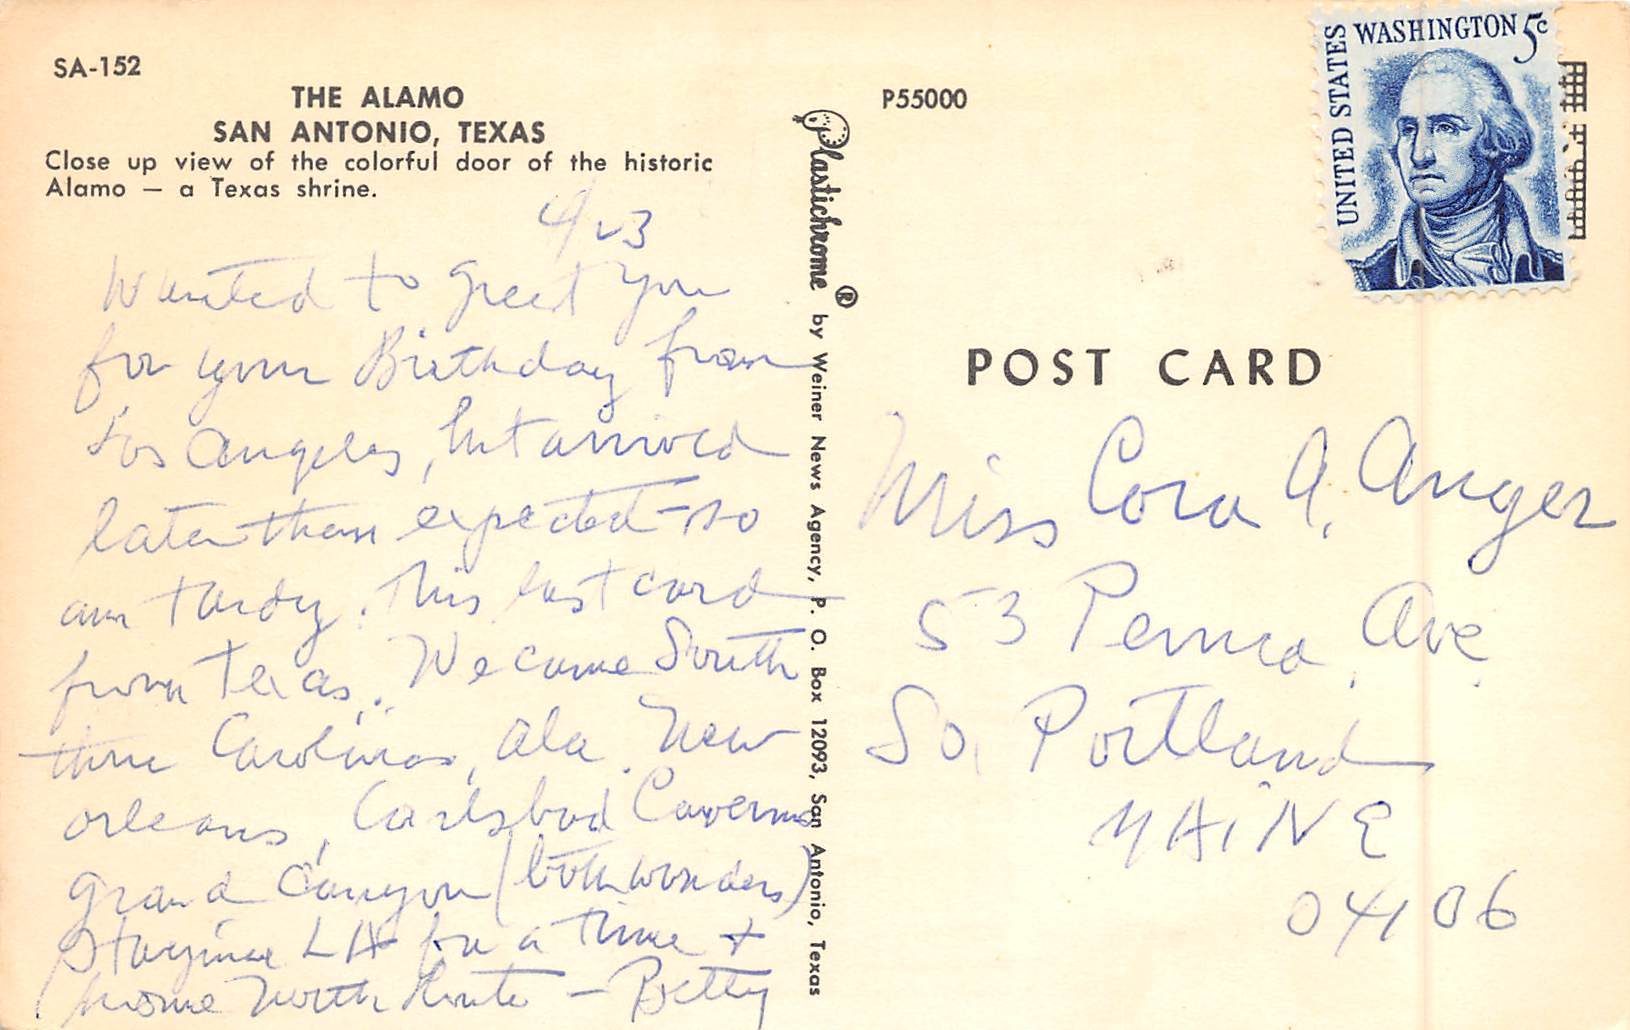 SA-152
THE ALAMO
SAN ANTONIO, TEXAS
Close up view of the colorful door of the historic
Alamo — a Texas shrine.
4/23
Wanted to greet you
for your Birthday from
Los Angeles, but arrived
later than expected - so
am tardy. This last card
from Texas. We came South
thru Carolinas, Ala. New
Orleans, Carlsbad Caverns
Grand Canyon (both wonders)
Staying LA for a time +
home North Route - Betty
Plastichrome® by Weiner News Agency, P. O. Box 12093, San Antonio, Texas
P55000
UNITED STATES
WASHINGTON 5c
POST CARD
Miss Cora A. Anger
53 Ave.
So. Portland
MAINE
04106